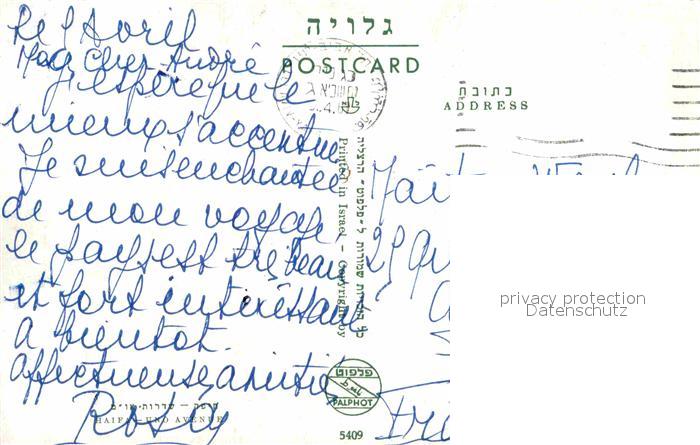 Le 1 Avril
Mon Cher André
J'espère que le
mieux s'accentue
Je suis enchantée
de mon voyage,
le pays est très beau
et fort intéressant
A bientot.
affectueuse amitié
Rosy
גלויה
POSTCARD
כתובת
ADDRESS
Printed in Israel – Copyright by
כל הזכויות שמורות ל"פלפוט" הרצליה
29
פלפוט
PALPHOT
5409
חיפה – שדרות או״מ
HAIFA – UNO AVENUE
privacy protection
Datenschutz